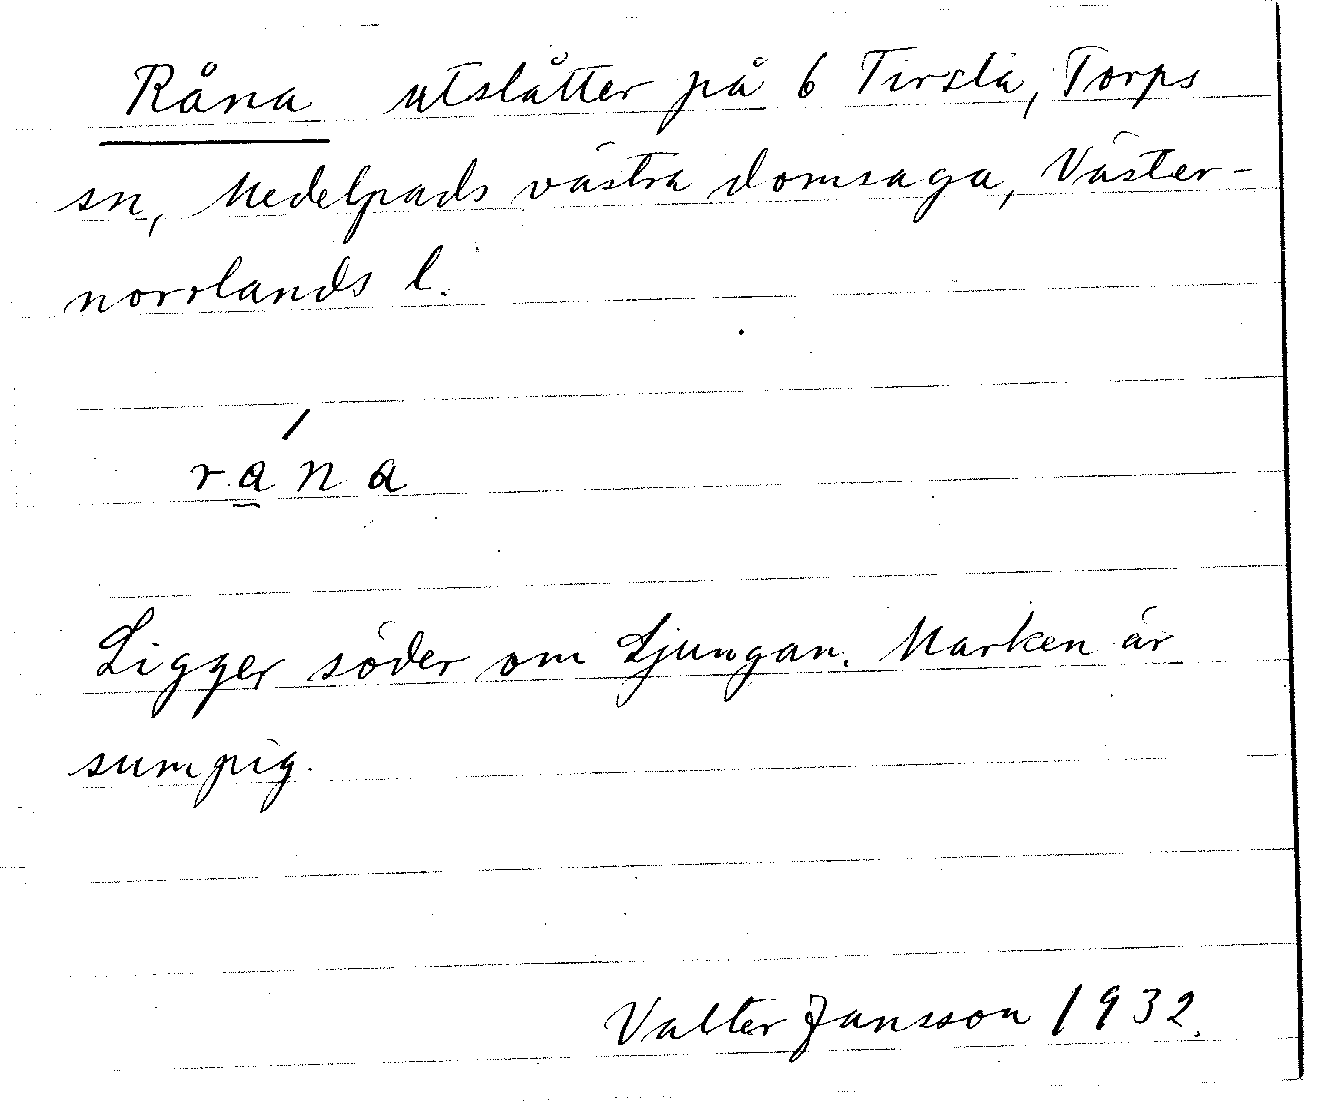 Råna utslåtter på 6 Tirsta, Torps
sn, Medelpads västra domsaga, Väster-
norrlands l.
rána
Ligger söder om Ljungan. Marken är
sumpig.
Valter Jansson 1932.